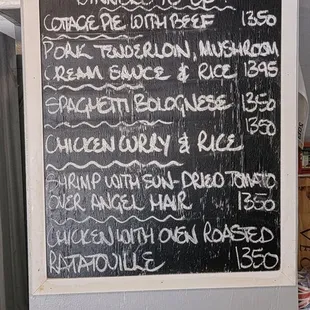 COTAGE PIE WITH BEEF 1350
PORK TENDERLOIN, MUSHROOM
CREAM SAUCE & RICE 1395
SPAGHETTI BOLOGNESE 1350
1350
CHICKEN CURRY & RICE
SHRIMP WITH SUN-DRIED TOMATO
OVER ANGEL HAIR 1350
CHICKEN WITH OVEN ROASTED
RATATOUILLE 1350